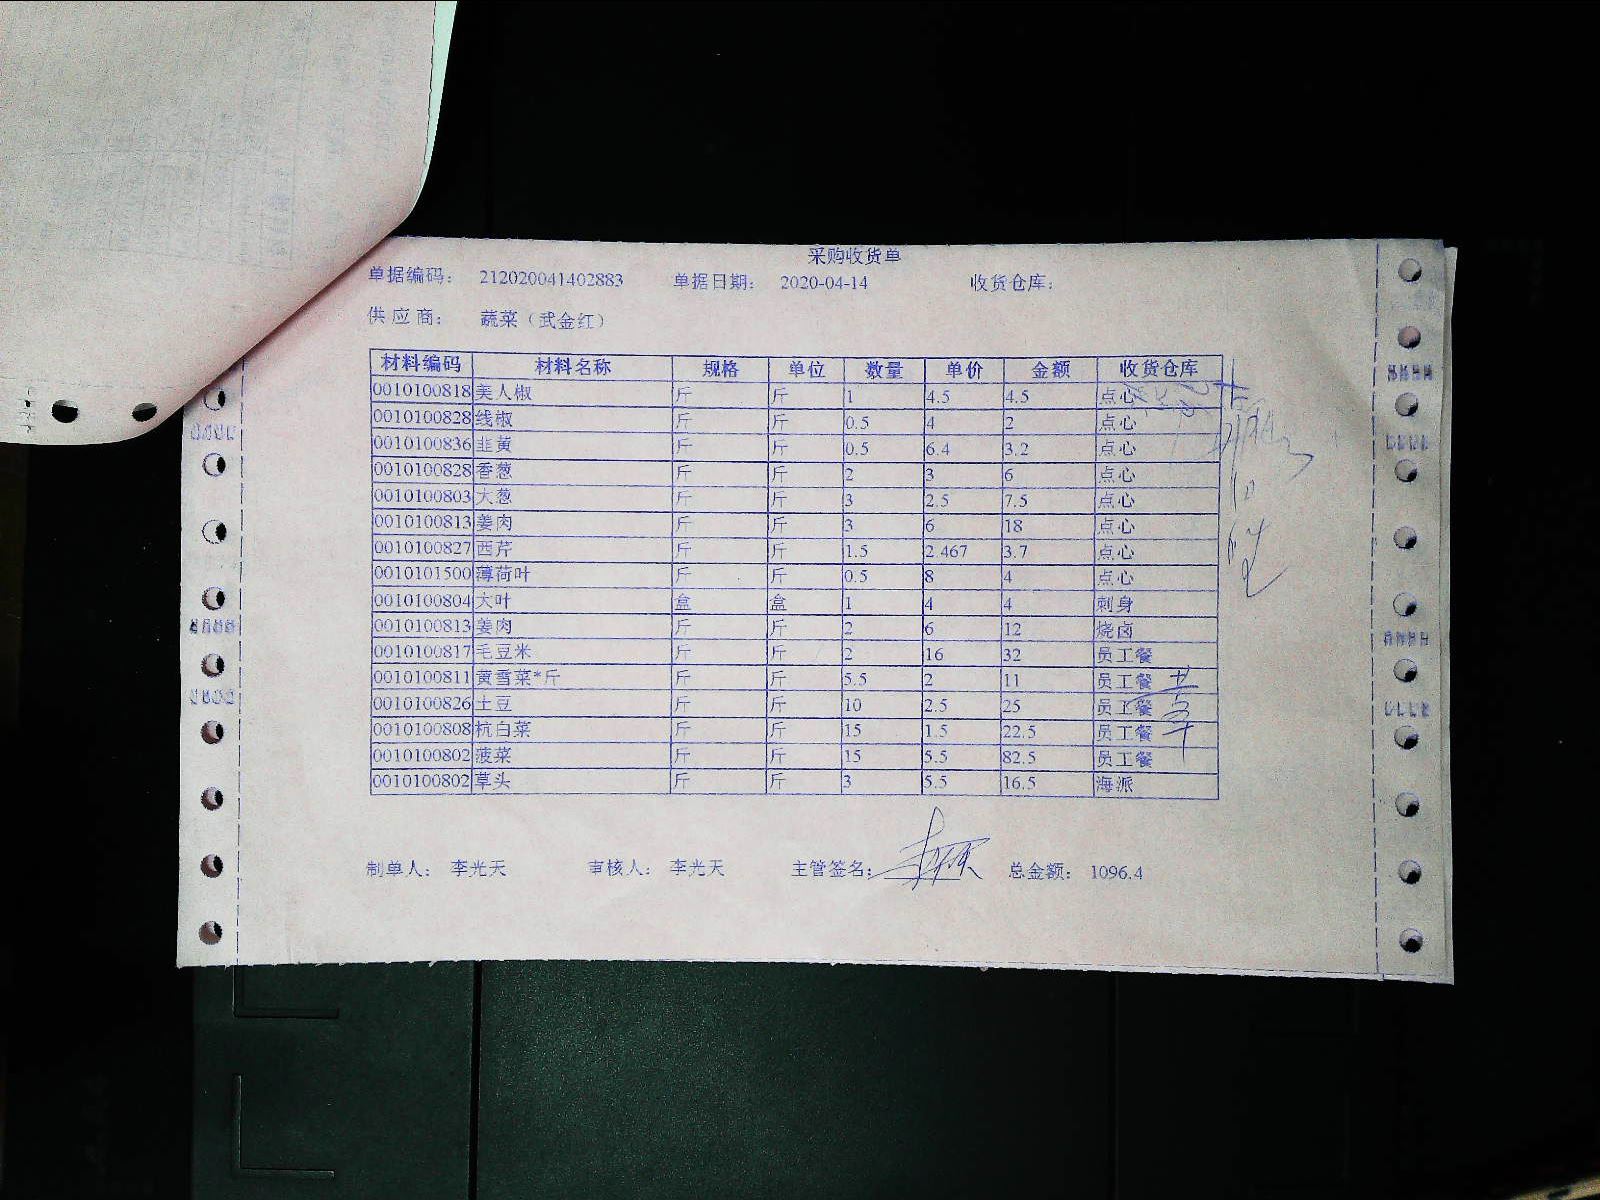 采购收货单
单据编码： 212020041402883 单据日期： 2020-04-14 收货仓库：
供应商： 蔬菜（武金红）
材料编码 材料名称 规格 单位 数量 单价 金额 收货仓库
0010100818 美人椒 斤 斤 1 4.5 4.5 点心
0010100828 线椒 斤 斤 0.5 4 2 点心
0010100836 韭黄 斤 斤 0.5 6.4 3.2 点心
0010100828 香葱 斤 斤 2 3 6 点心
0010100803 大葱 斤 斤 3 2.5 7.5 点心
0010100813 姜肉 斤 斤 3 6 18 点心
0010100827 西芹 斤 斤 1.5 2.467 3.7 点心
0010101500 薄荷叶 斤 斤 0.5 8 4 点心
0010100804 大叶 盒 盒 1 4 4 刺身
0010100813 姜肉 斤 斤 2 6 12 烧卤
0010100817 毛豆米 斤 斤 2 16 32 员工餐
0010100811 黄雪菜*斤 斤 斤 5.5 2 11 员工餐
0010100826 土豆 斤 斤 10 2.5 25 员工餐
0010100808 杭白菜 斤 斤 15 1.5 22.5 员工餐
0010100802 菠菜 斤 斤 15 5.5 82.5 员工餐
0010100802 草头 斤 斤 3 5.5 16.5 海派
制单人： 李光天 审核人： 李光天 主管签名： 总金额： 1096.4